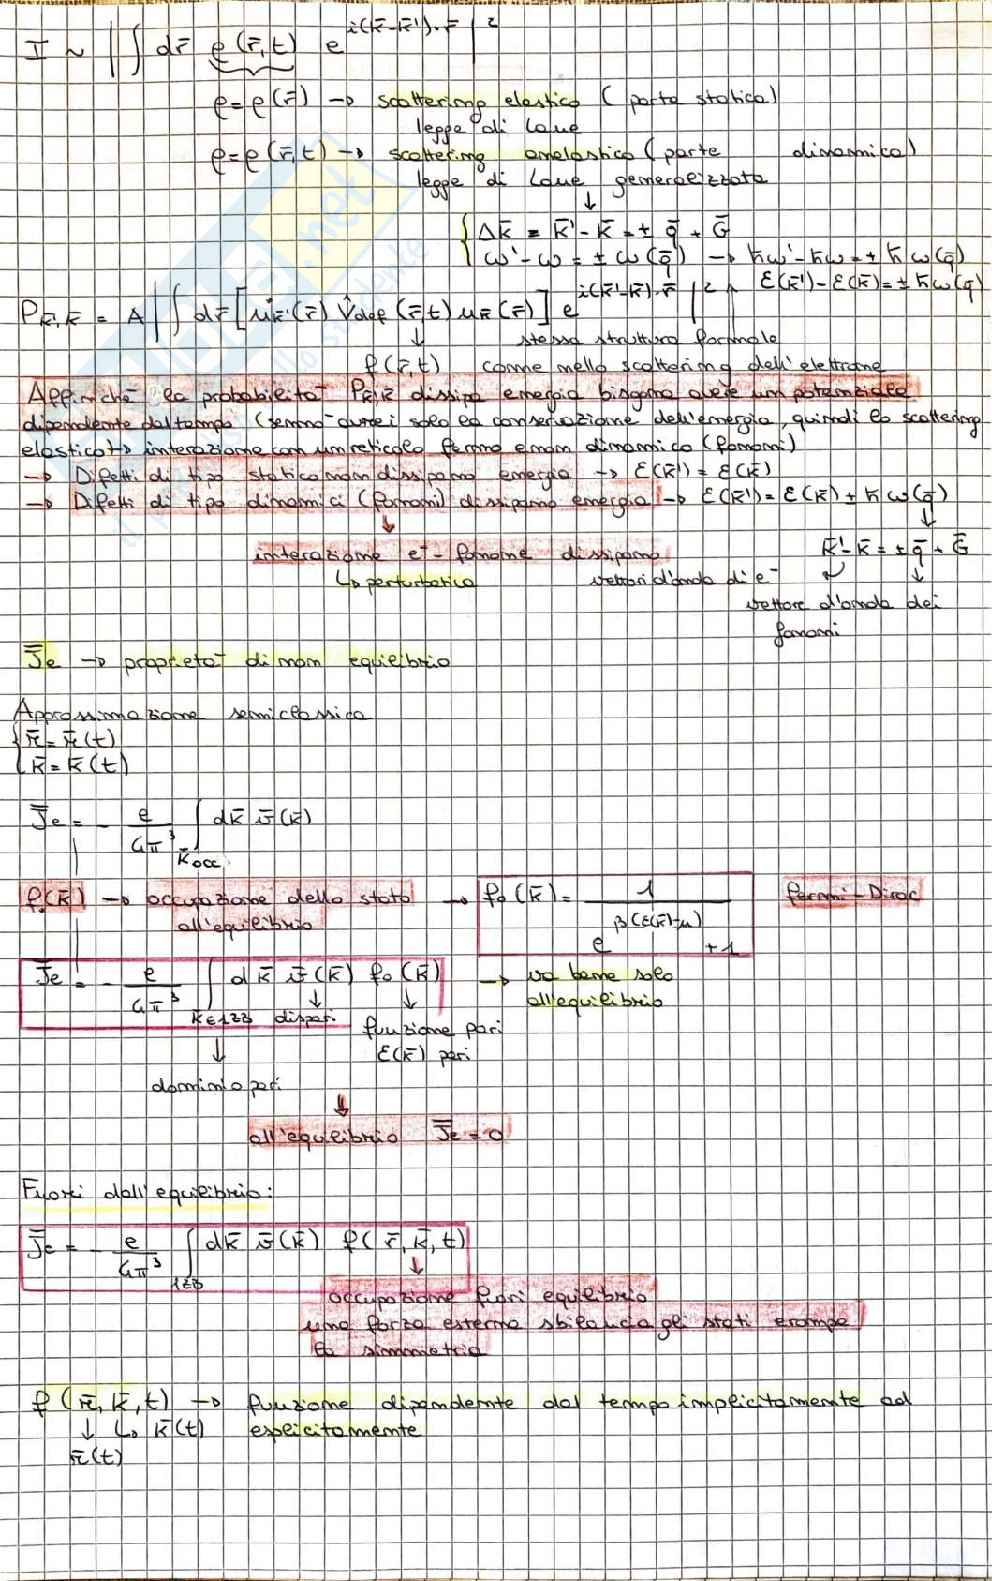 I ~ |∫ dr̄ ρ(r̄,t) e^{i(k̄-k̄')·r̄}|²
ρ=ρ(r̄) → scattering elastico (parte statica)
legge di Laue
ρ=ρ(r̄,t) → scattering anelastico (parte dinamica)
legge di Laue generalizzata
↓
{ Δk̄ = k̄'-k̄ = ± q̄ + Ḡ
ω'-ω = ± ω(q̄) → ħω'-ħω = ± ħω(q̄)
ε(k̄')-ε(k̄) = ± ħω(q̄)
P_{k̄',k̄} = A |∫ dr̄ [u*_{k̄'}(r̄) V̂def(r̄,t) u_{k̄}(r̄)] e^{i(k̄'-k̄)·r̄}|²
↓ stessa struttura formale
f(r̄,t) come nello scattering dell'elettrone
Affinché la probabilità P_{k̄'k̄} dissipa energia bisogna avere un potenziale
dipendente dal tempo (sennò avrei solo la conservazione dell'energia, quindi lo scattering
elastico) → interazione con un reticolo fermo e non dinamico (fononi)
→ Difetti di tipo statico non dissipano energia → ε(k̄') = ε(k̄)
→ Difetti di tipo dinamici (fononi) dissipano energia → ε(k̄') = ε(k̄) ± ħω(q̄)
↓ ↓
interazione e⁻-fonone dissipano k̄'-k̄ = ± q̄ + Ḡ
↳ perturbativa vettori d'onda di e⁻ ↓
vettore d'onda dei
fononi
J̄e → proprietà di non equilibrio
Approssimazione semiclassica
{ r̄ = r̄(t)
k̄ = k̄(t)
J̄e = - e/4π³ ∫_{k̄occ} dk̄ v̄(k̄)
f₀(k̄) → occupazione dello stato → f₀(k̄) = 1/(e^{β(ε(k̄)-μ)} + 1) Fermi-Dirac
all'equilibrio
J̄e = - e/4π³ ∫_{k̄∈1ZB} dk̄ v̄(k̄) f₀(k̄) → va bene solo
all'equilibrio
↓ dispari ↓ funzione pari
ε(k̄) pari
↓
dominio pari
↓
all'equilibrio J̄e = 0
Fuori dall'equilibrio:
J̄e = - e/4π³ ∫_{1ZB} dk̄ v̄(k̄) f(r̄,k̄,t)
↓
occupazione fuori equilibrio
una forza esterna sbilancia gli stati e rompe
la simmetria
f(r̄,k̄,t) → funzione dipendente dal tempo implicitamente ed
↓ ↳ k̄(t) esplicitamente
r̄(t)